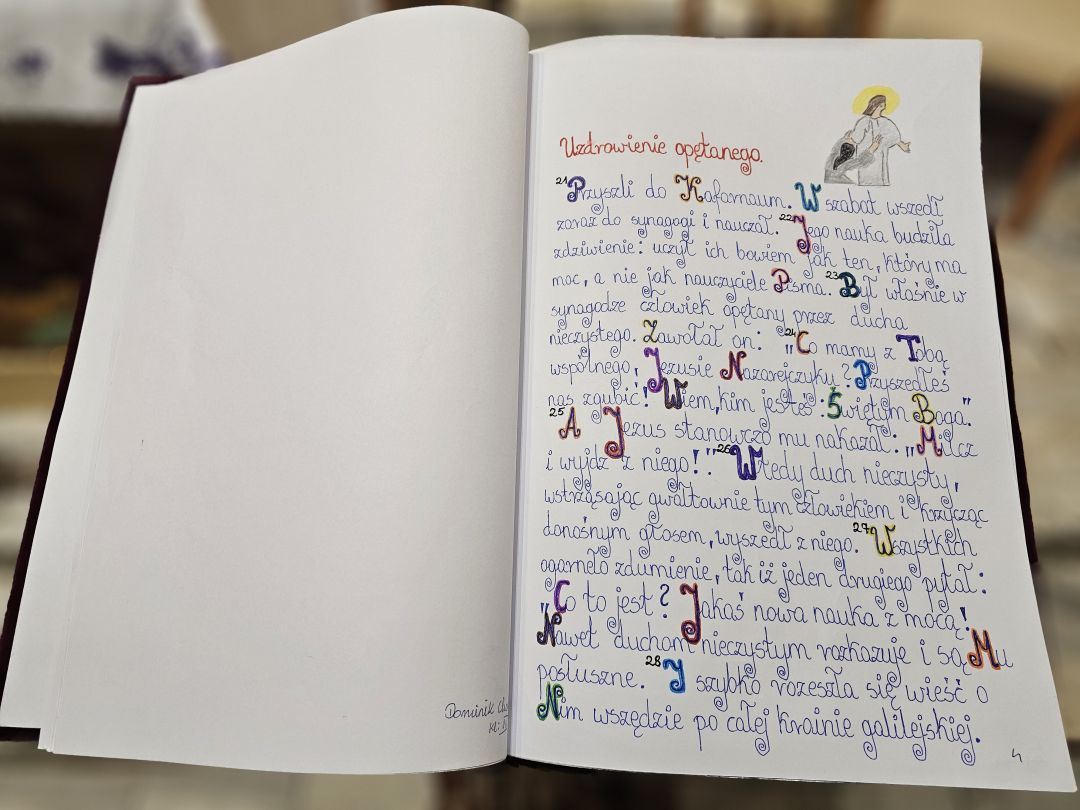 Dominik
kl.
Uzdrowienie opętanego.
21 Przyszli do Kafarnaum. W szabat wszedł
zaraz do synagogi i nauczał. 22 Jego nauka budziła
zdziwienie: uczył ich bowiem jak ten, który ma
moc, a nie jak nauczyciele Pisma. 23 Był właśnie w
synagodze człowiek opętany przez ducha
nieczystego. Zawołał on: 24 "Co mamy z Tobą
wspólnego, Jezusie Nazarejczyku? Przyszedłeś
nas zgubić! Wiem, kim jesteś: Świętym Boga."
25 A Jezus stanowczo mu nakazał: "Milcz
i wyjdź z niego!". 26 Wtedy duch nieczysty,
wstrząsając gwałtownie tym człowiekiem i krzycząc
donośnym głosem, wyszedł z niego. 27 Wszystkich
ogarnęło zdumienie, tak iż jeden drugiego pytał:
"Co to jest? Jakaś nowa nauka z mocą!
Nawet duchom nieczystym rozkazuje i są Mu
posłuszne. 28 I szybko rozeszła się wieść o
Nim wszędzie po całej krainie galilejskiej.
4